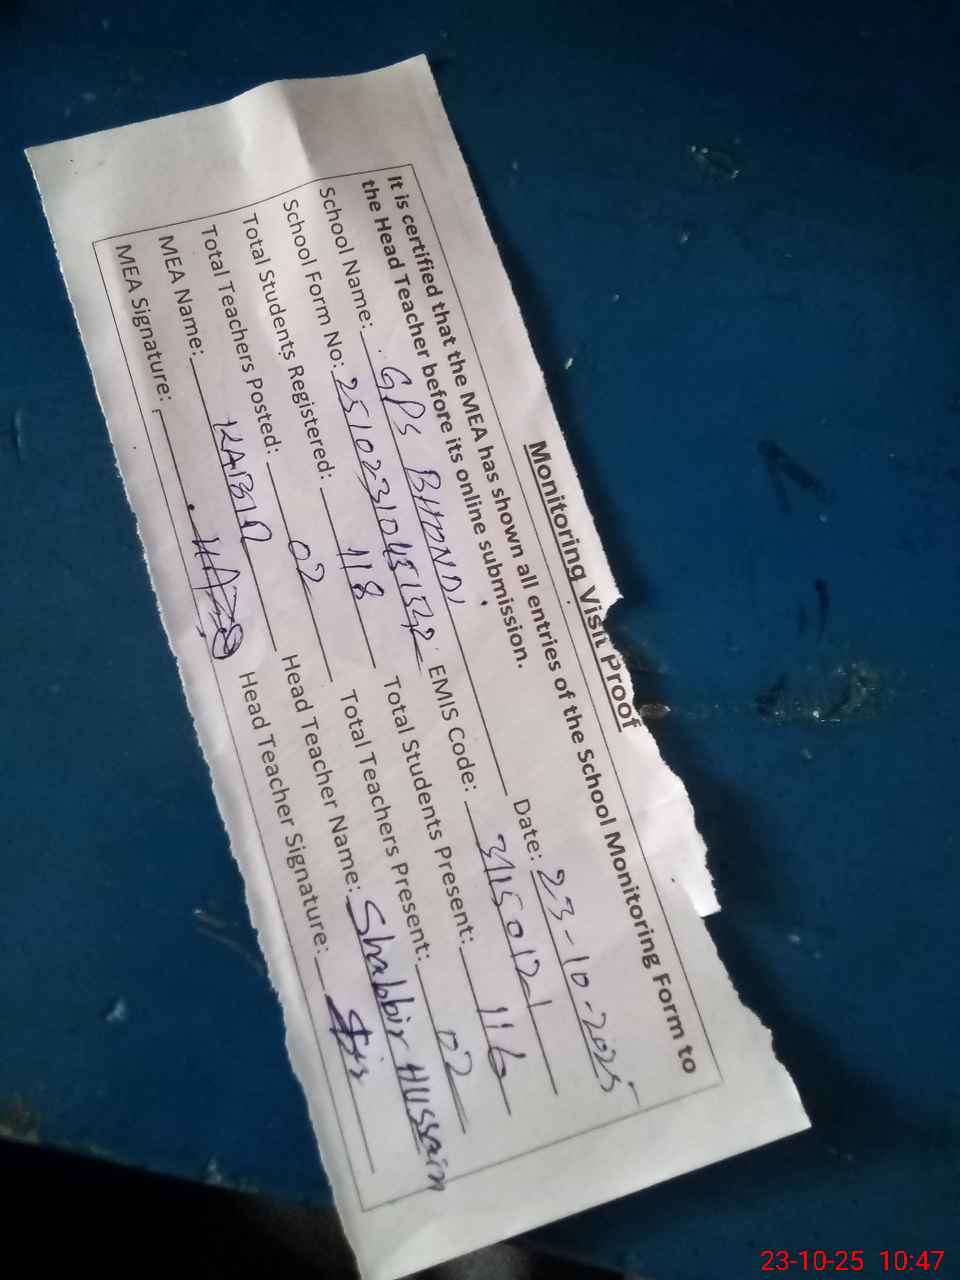 Monitoring Visit Proof
It is certified that the MEA has shown all entries of the School Monitoring Form to
the Head Teacher before its online submission.
School Name: GPS BHDNDI Date: 23-10-2025
School Form No: EMIS Code: 31150121
Total Students Registered: 118 Total Students Present: 116
Total Teachers Posted: 02 Total Teachers Present: 02
MEA Name: KABIR Head Teacher Name: Shabbir Hussain
MEA Signature: Head Teacher Signature:
23-10-25 10:47